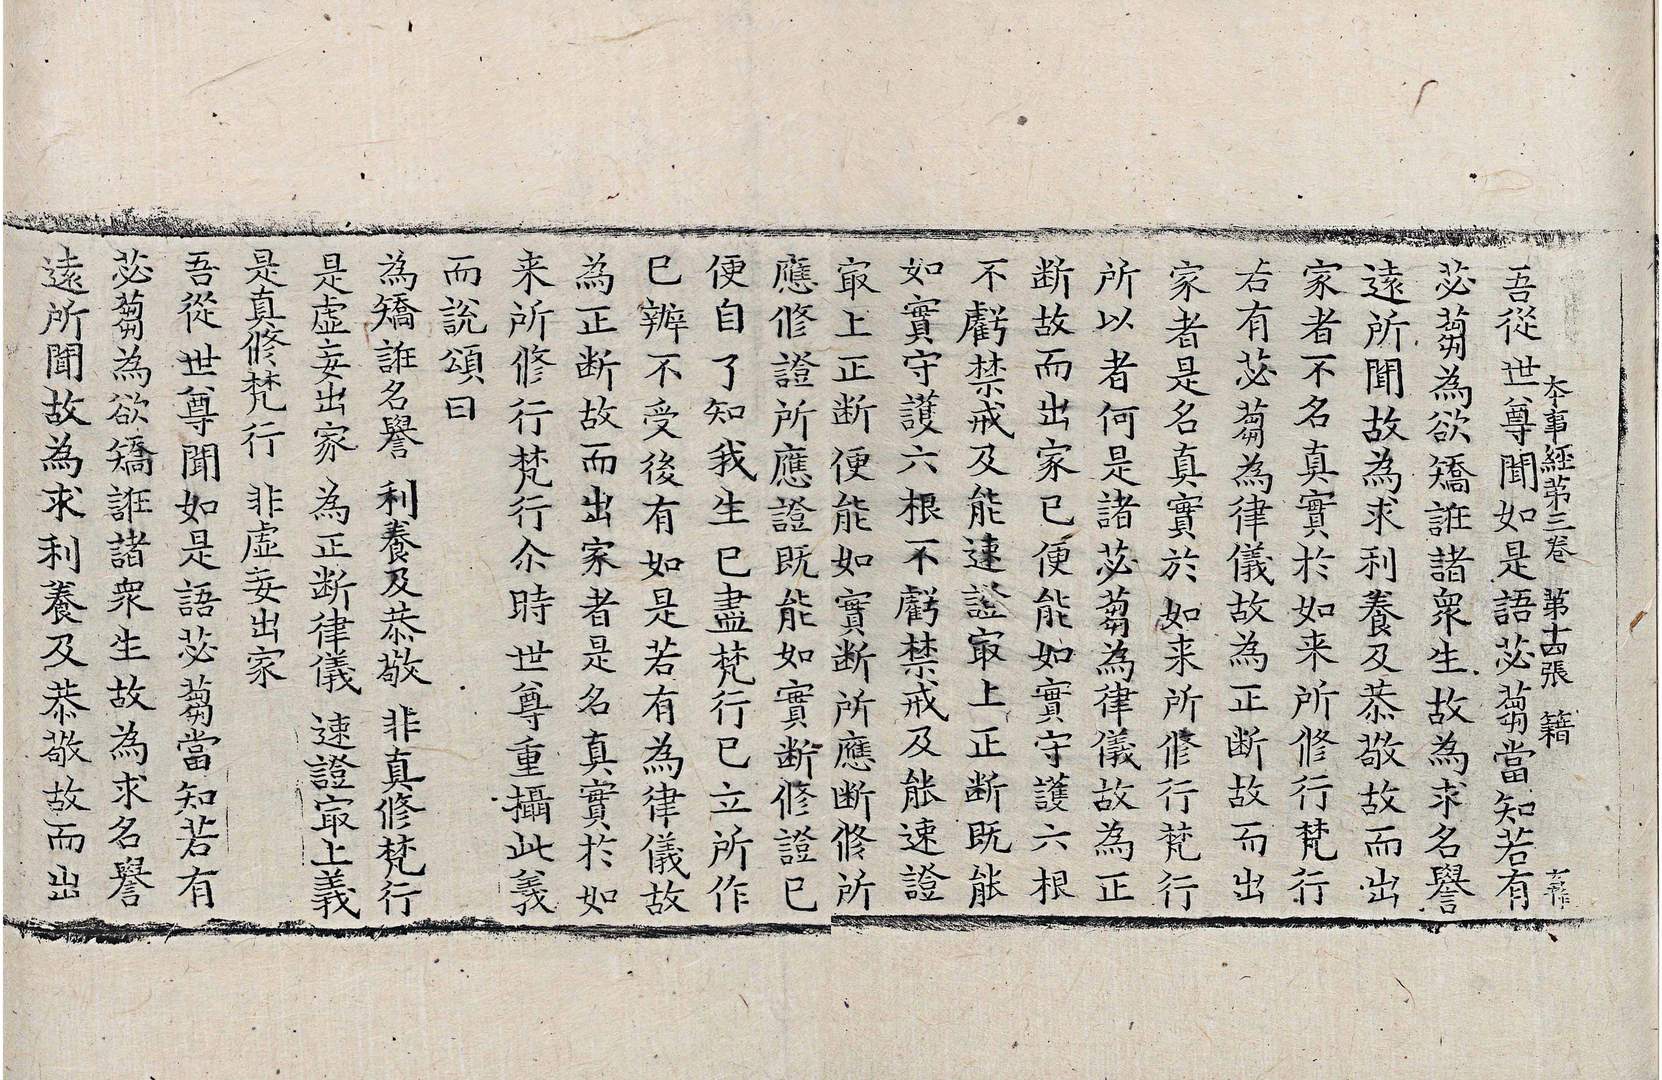 本事經第三卷 第十四張 籍
吾從世尊聞如是語苾蒭當知若有
苾蒭為欲矯誑諸衆生故為求名譽
遠所聞故為求利養及恭敬故而出
家者不名真實於如来所修行梵行
右有苾蒭為律儀故為正断故而出
家者是名真實於如来所修行梵行
所以者何是諸苾蒭為律儀故為正
断故而出家已便能如實守護六根
不虧禁戒及能速證㝡上正断既能
如實守護六根不虧禁戒及能速證
㝡上正断便能如實断所應断修所
應修證所應證既能如實断修證已
便自了知我生已盡梵行已立所作
已辦不受後有如是若有為律儀故
為正断故而出家者是名真實於如
来所修行梵行尒時世尊重攝此義
而說頌曰
為矯誑名譽 利養及恭敬 非真修梵行
是虛妄出家 為正断律儀 速證㝡上義
是真修梵行 非虛妄出家
吾從世尊聞如是語苾蒭當知若有
苾蒭為欲矯誑諸衆生故為求名譽
遠所聞故為求利養及恭敬故而出